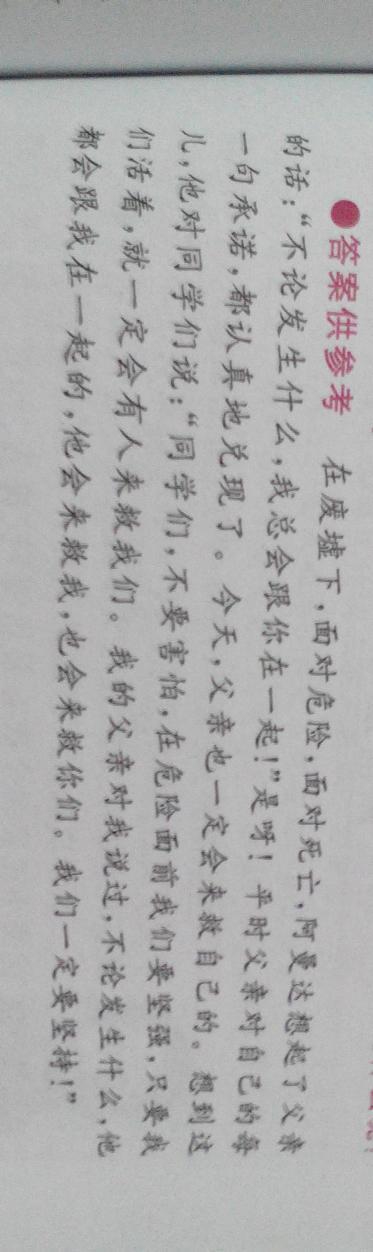 ●答案供参考 在废墟下，面对危险，面对死亡，阿曼达想起了父亲
的话：“不论发生什么，我总会跟你在一起！”是呀！平时父亲对自己的每
一句承诺，都认真地兑现了。今天，父亲也一定会来救自己的。想到这
儿，他对同学们说：“同学们，不要害怕，在危险面前我们要坚强，只要我
们活着，就一定会有人来救我们。我的父亲对我说过，不论发生什么，他
都会跟我在一起的，他会来救我，也会来救你们。我们一定要坚持！”